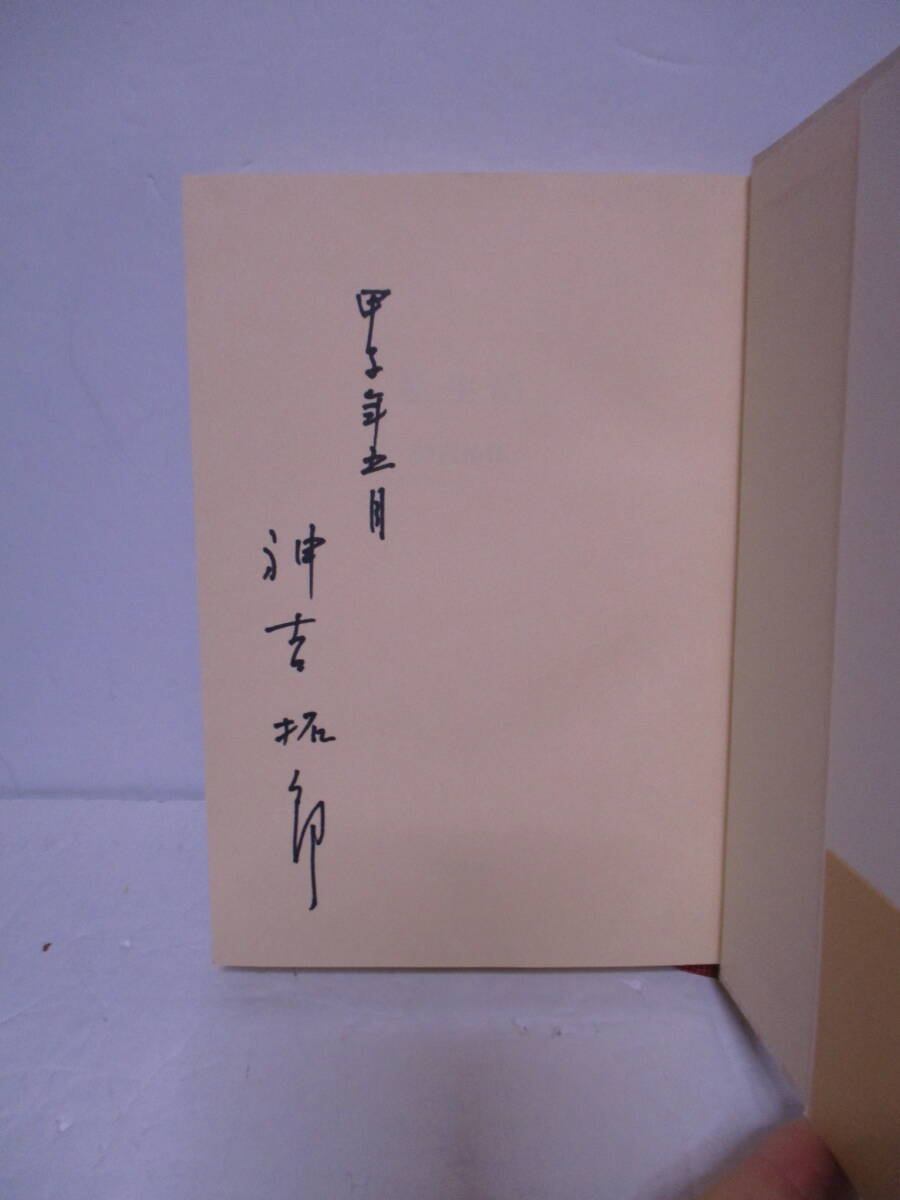 甲子年五月
神吉拓郎